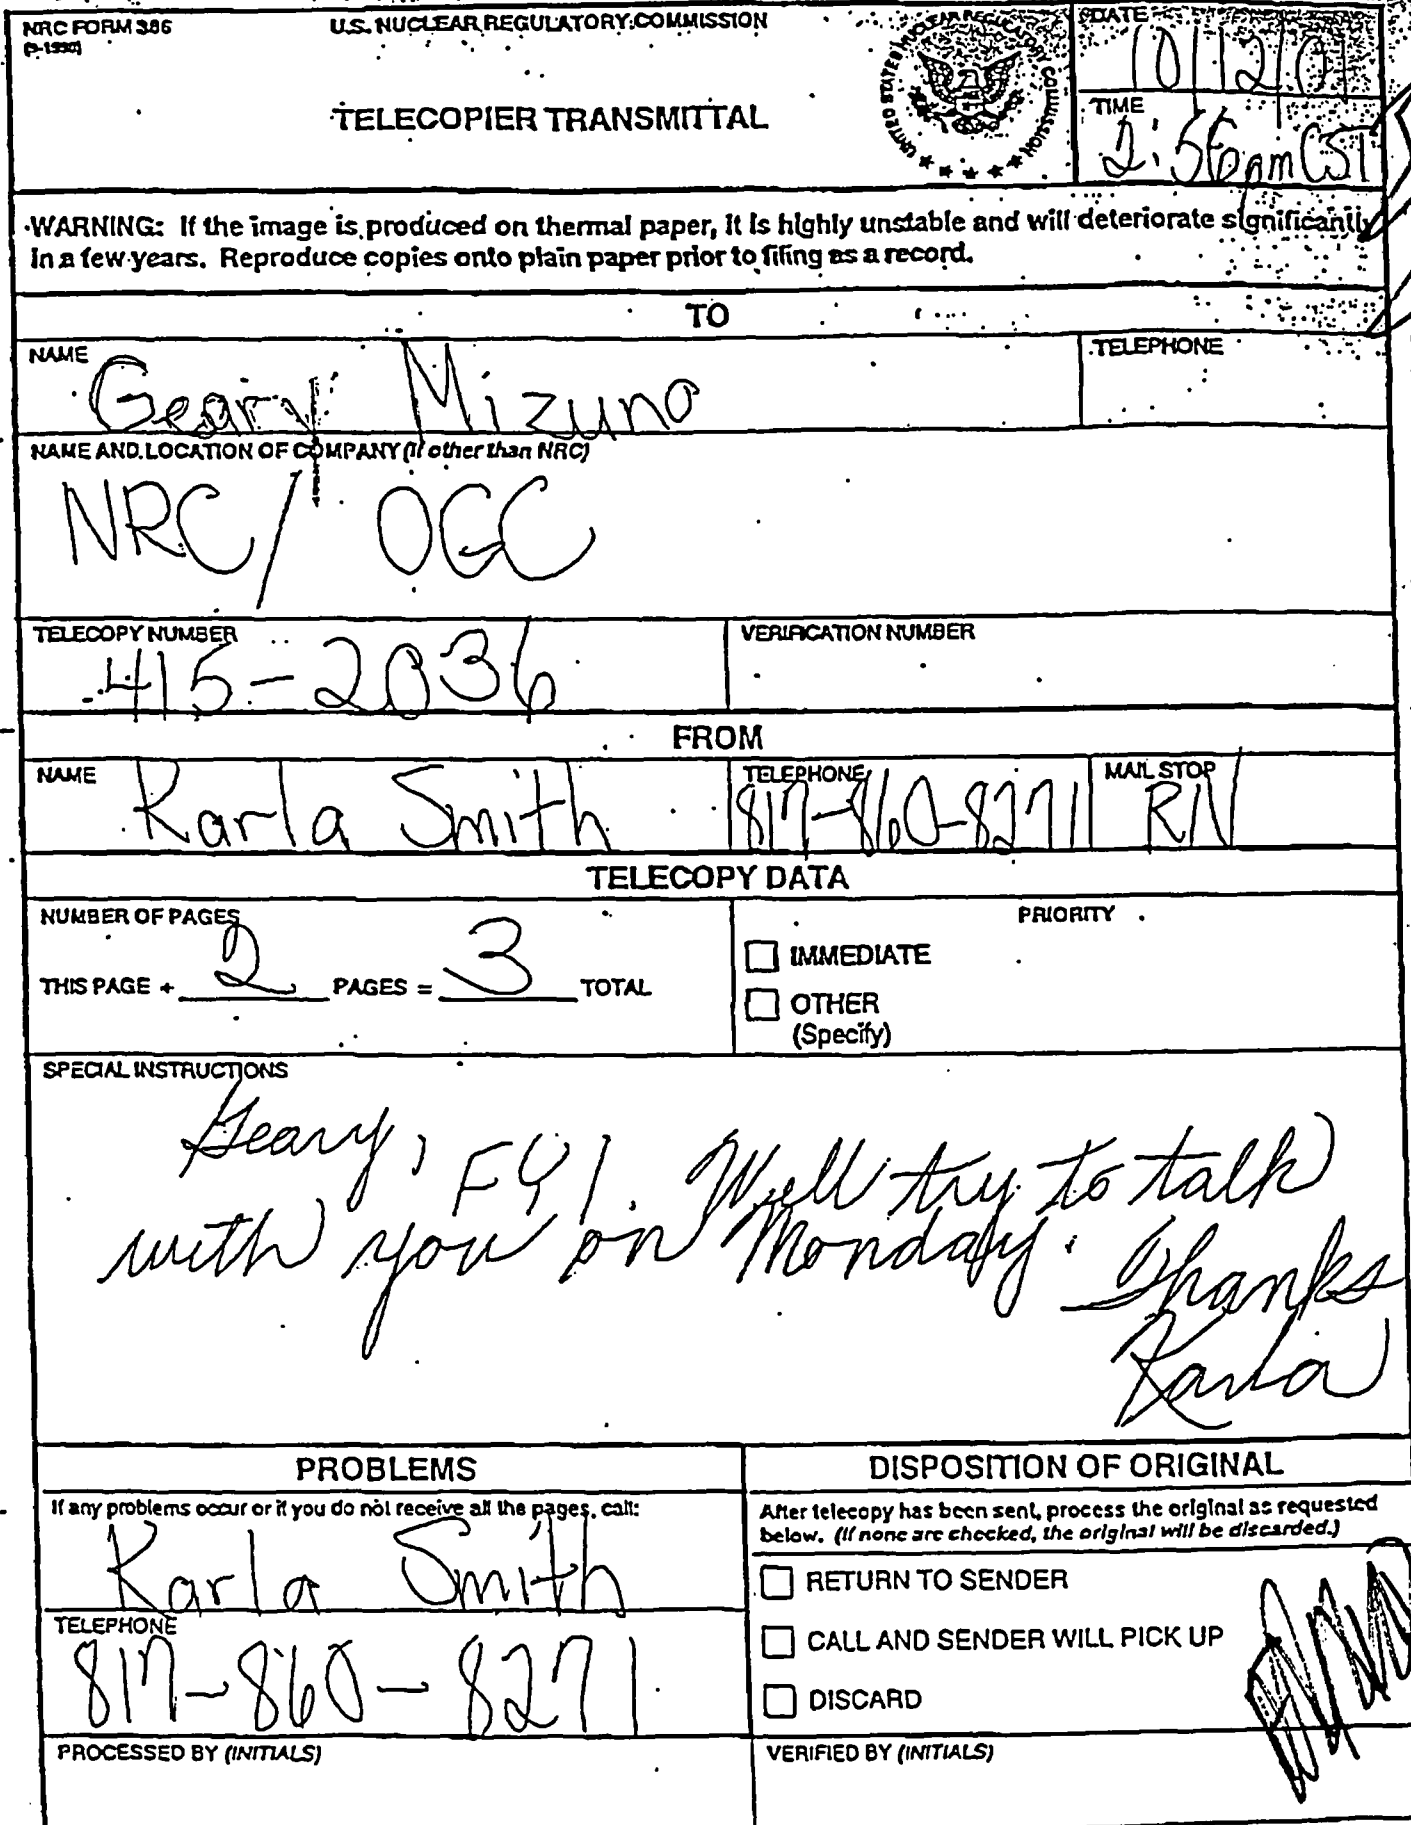 NRC FORM 386
(9-1990)
U.S. NUCLEAR REGULATORY COMMISSION
TELECOPIER TRANSMITTAL
UNITED STATES NUCLEAR REGULATORY COMMISSION
DATE
10/12/01
TIME
2:56pm CST
WARNING: If the image is produced on thermal paper, it is highly unstable and will deteriorate significantly
in a few years. Reproduce copies onto plain paper prior to filing as a record.
TO
NAME
Geary Mizuno
TELEPHONE
NAME AND LOCATION OF COMPANY (If other than NRC)
NRC/ OGC
TELECOPY NUMBER
415-2036
VERIFICATION NUMBER
FROM
NAME
Karla Smith
TELEPHONE
817-860-8271
MAIL STOP
RIV
TELECOPY DATA
NUMBER OF PAGES
THIS PAGE + 2 PAGES = 3 TOTAL
PRIORITY
IMMEDIATE
OTHER
(Specify)
SPECIAL INSTRUCTIONS
Geary, FYI. Will try to talk
with you on Monday. Thanks
Karla
PROBLEMS
If any problems occur or if you do not receive all the pages, call:
Karla Smith
TELEPHONE
817-860-8271
DISPOSITION OF ORIGINAL
After telecopy has been sent, process the original as requested
below. (If none are checked, the original will be discarded.)
RETURN TO SENDER
CALL AND SENDER WILL PICK UP
DISCARD
PROCESSED BY (INITIALS)
VERIFIED BY (INITIALS)